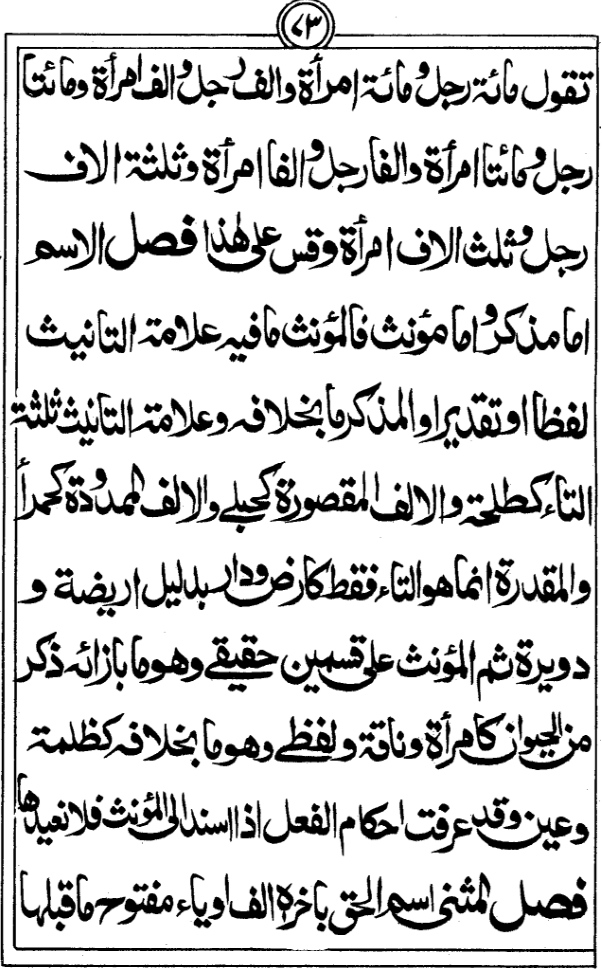 ٧٣
تقول مائة رجل ومائة امرأة والف رجل والف امرأة ومائتا
رجل ومائتا امرأة والفا رجل والفا امرأة وثلثة الاف
رجل وثلث الاف امرأة وقس على هذا فصل الاسم
اما مذكر واما مؤنث فالمؤنث ما فيه علامة التانيث
لفظا او تقديرا والمذكر ما بخلافه وعلامة التانيث ثلثة
التاء كطلحة والالف المقصورة كحبلى والالف الممدودة كحمرأ
والمقدرة انما هو التاء فقط كارض ودار بدليل اريضة و
دويرة ثم المؤنث على قسمين حقيقي وهو ما بازائه ذكر
من الحيوان كامرأة وناقة ولفظي وهو ما بخلافه كظلمة
وعين وقد عرفت احكام الفعل اذا اسند الى المؤنث فلا نعيدها
فصل المثنى اسم الحق باخره الف او ياء مفتوح ما قبلها